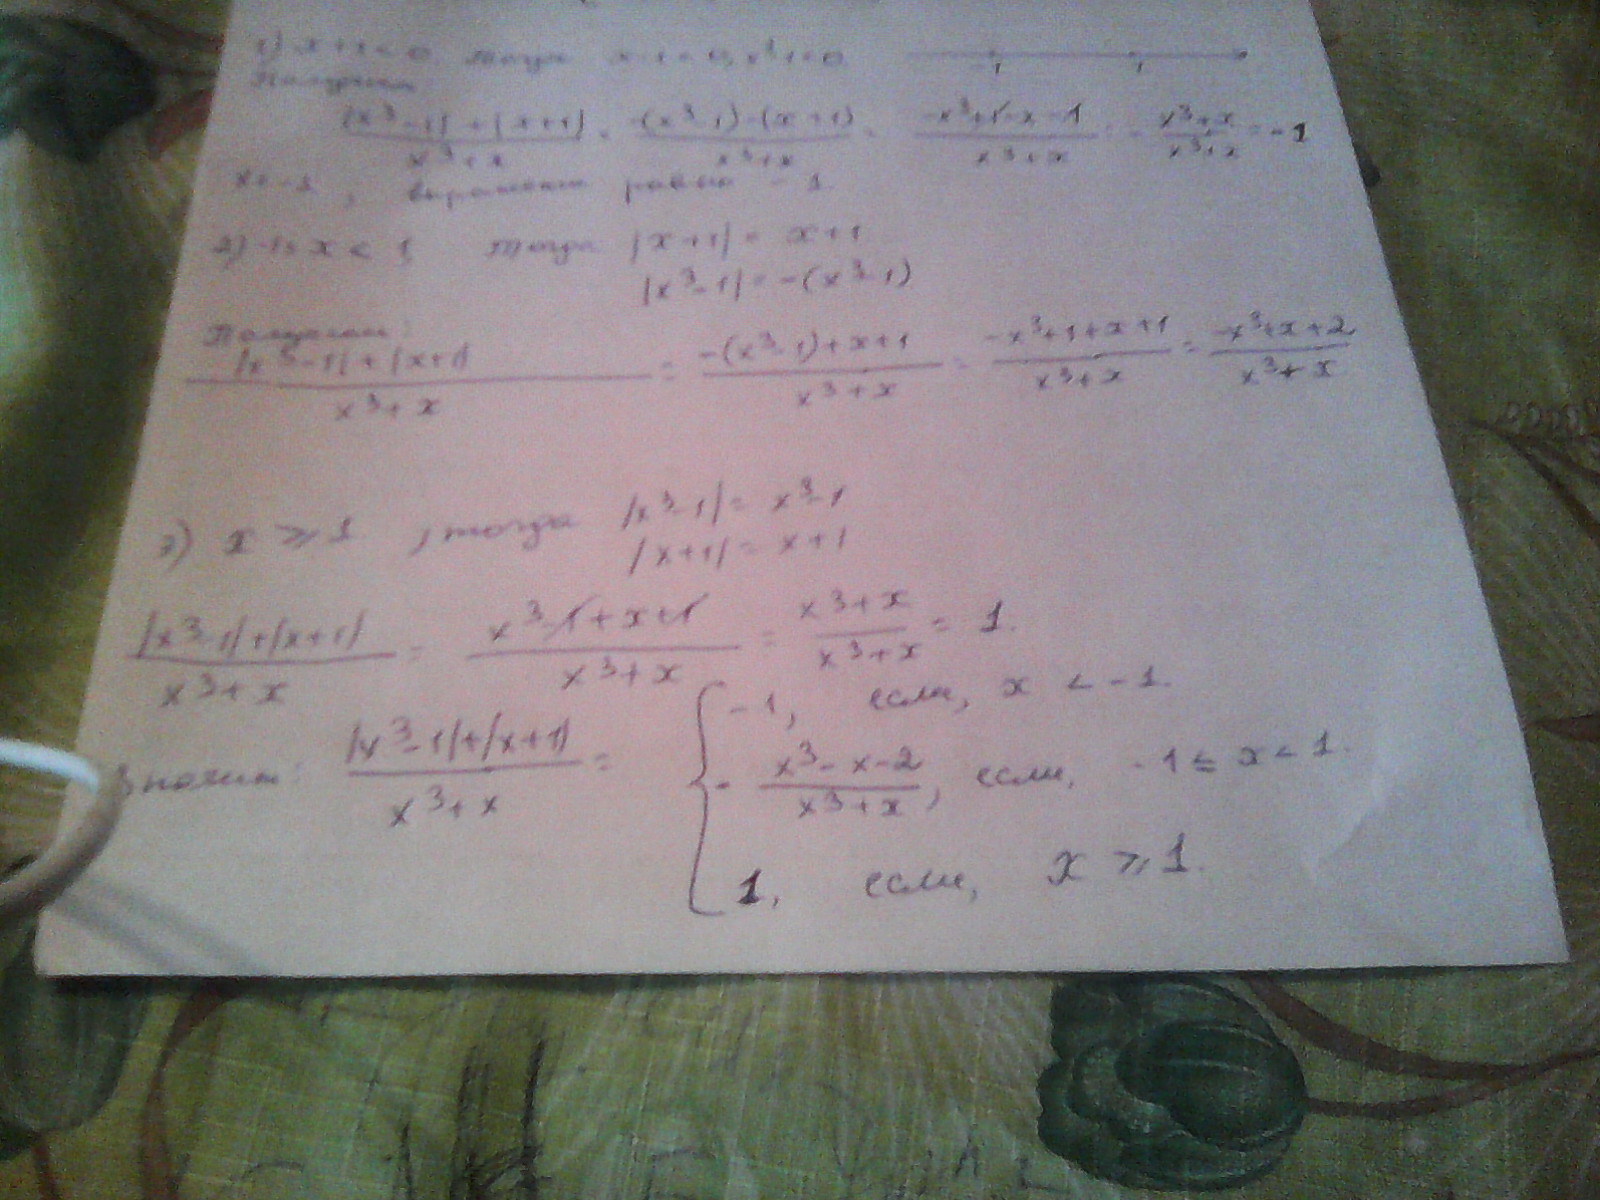 1) x+1<0. Тогда x-1<0, x³-1<0.
-1 1
Получим
|x³-1|+|x+1| / x³+x = -(x³-1)-(x+1) / x³+x = -x³+1-x-1 / x³+x = - x³+x / x³+x = -1
x<-1, выражение равно -1.
2) -1≤x<1 тогда |x+1|= x+1
|x³-1|=-(x³-1)
Получим:
|x³-1|+|x+1| / x³+x = -(x³-1)+x+1 / x³+x = -x³+1+x+1 / x³+x = -x³+x+2 / x³+x
3) x ⩾ 1, тогда |x³-1|= x³-1
|x+1|= x+1
|x³-1|+|x+1| / x³+x = x³-1+x+1 / x³+x = x³+x / x³+x = 1.
Значит: |x³-1|+|x+1| / x³+x = {
-1, если, x < -1.
- x³-x-2 / x³+x, если, -1≤x<1.
1, если, x ⩾ 1.